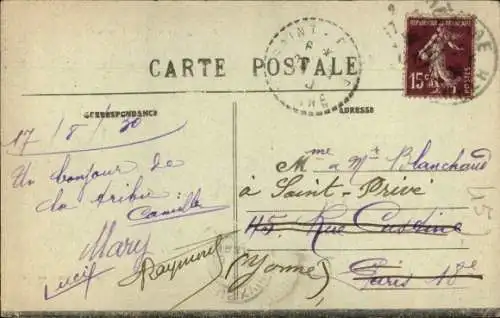 REPUBLIQUE FRANÇAISE
15c
POSTES
CARTE POSTALE
CORRESPONDANCE
ADRESSE
17/8/30
Un bonjour de
la tribu :
Camille
Mary
Lucie
Raymond
Mme & Mr Blanchard
à Saint-Privé
45 Rue Custine
(Yonne)
Paris 18e
45